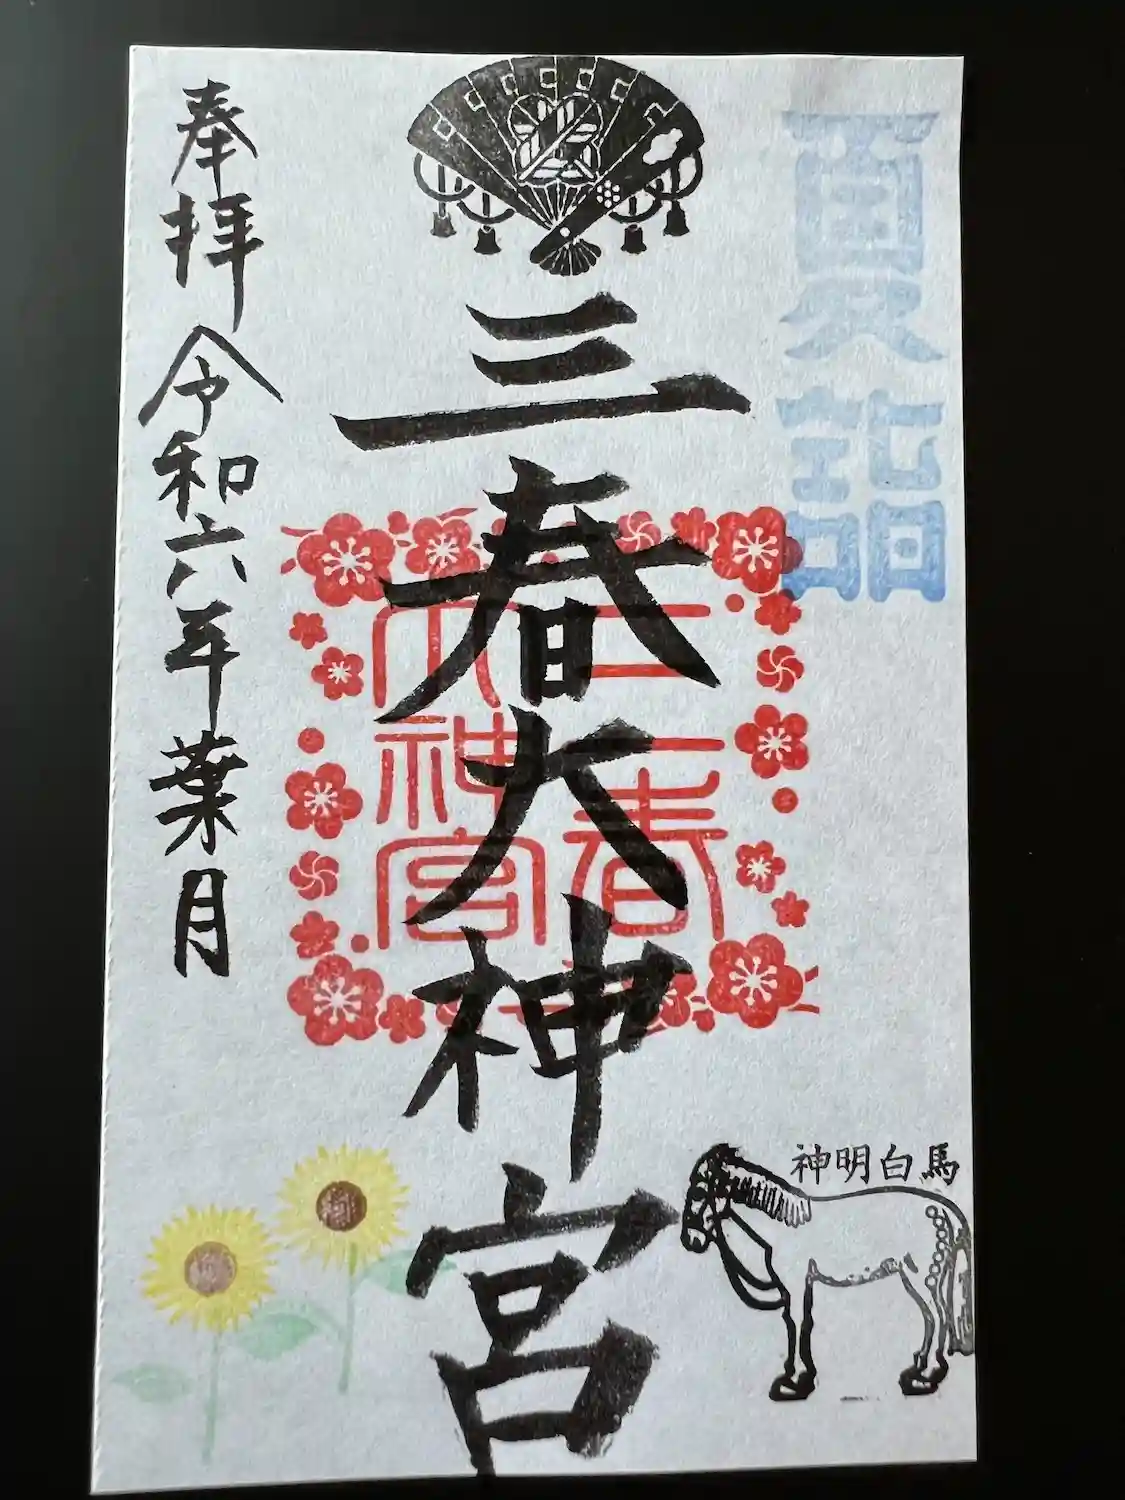 夏詣
三春大神宮
三春大神宮
奉拝 令和六年葉月
神明白馬